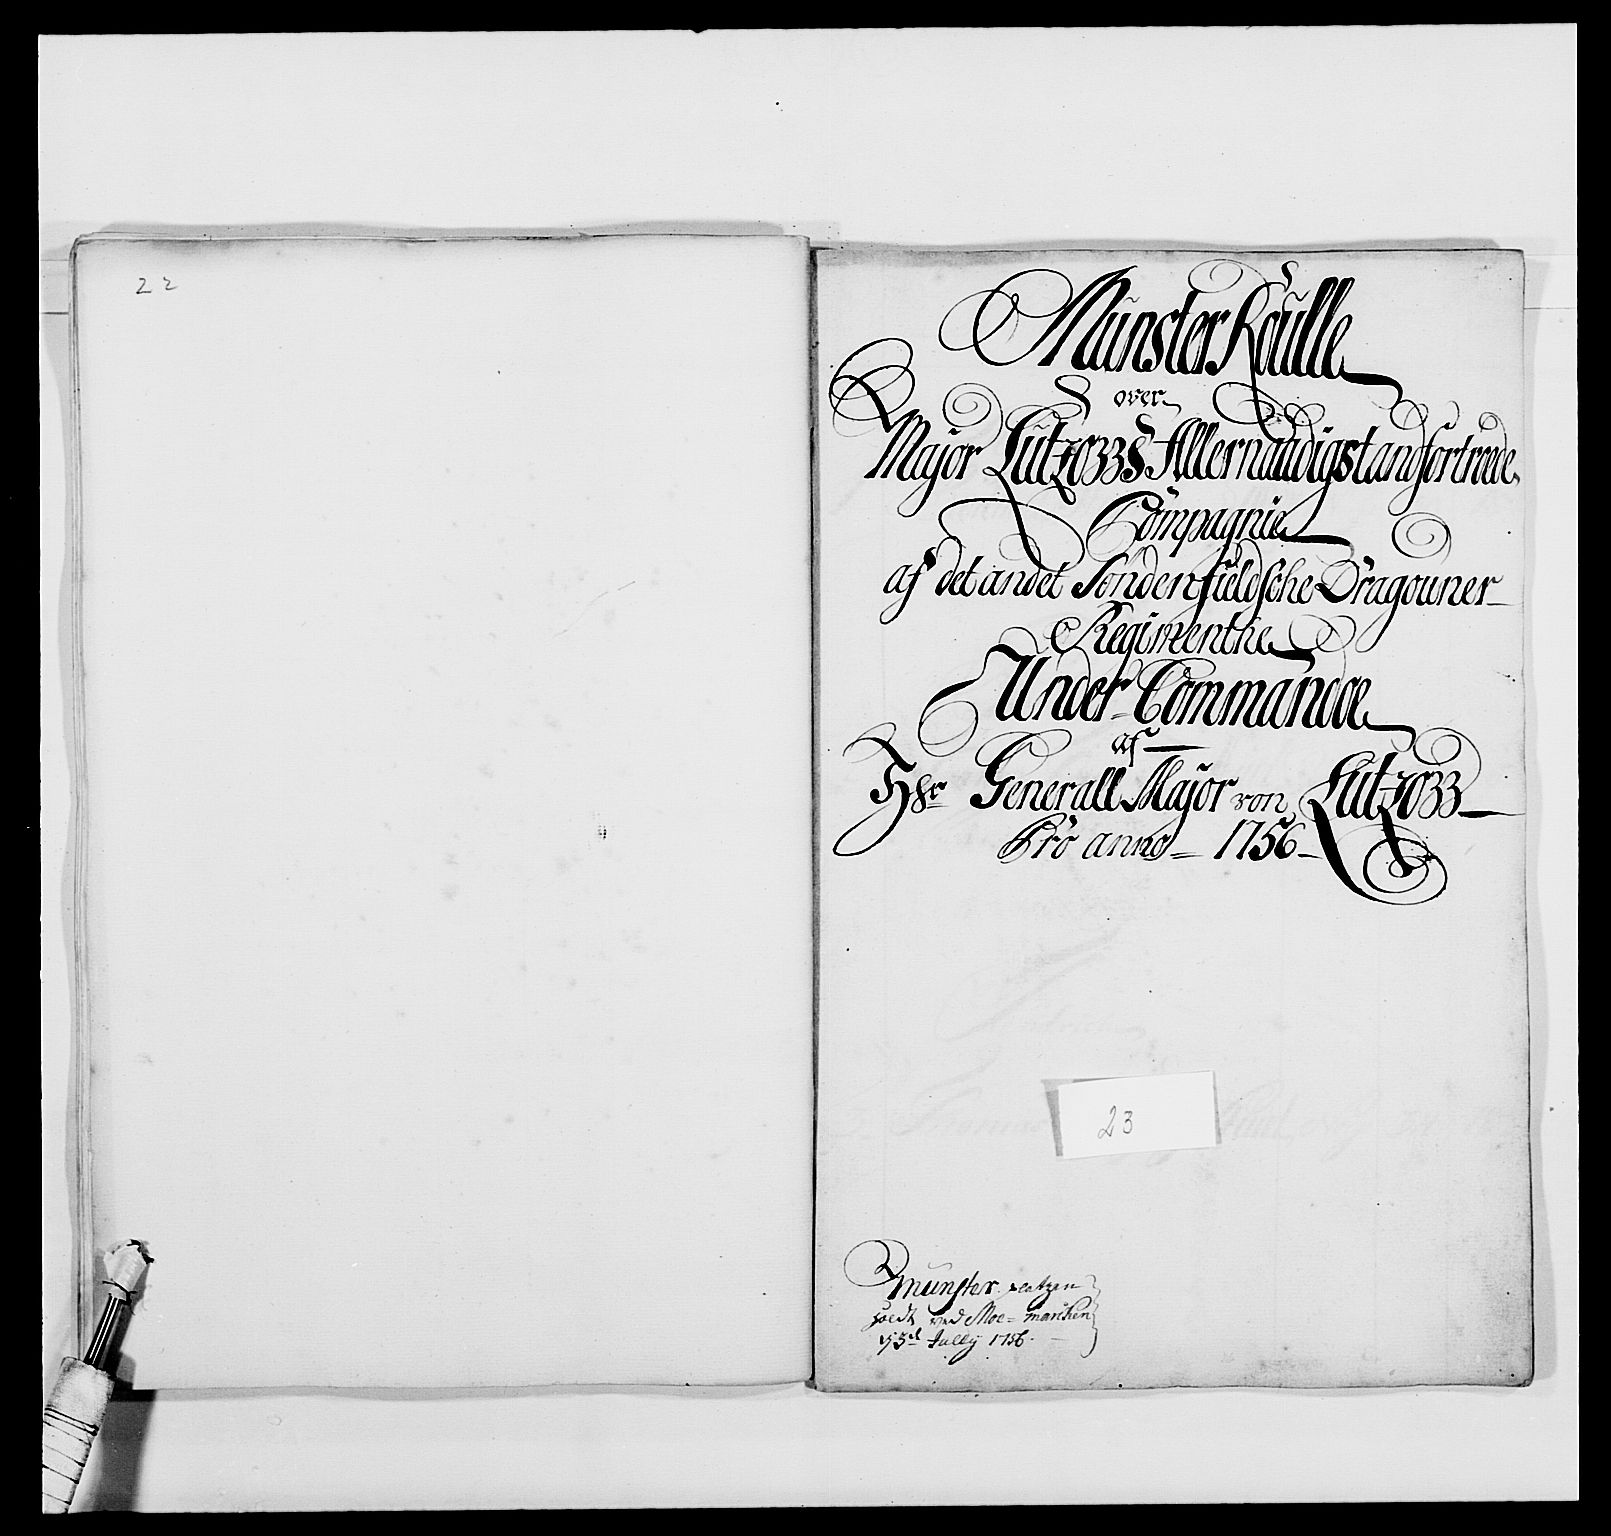 22
Munster Roulle
over
Major Lutzows Allernaadigst anfortroede
Compagnie
af det andet Söndenfieldsche Dragouner
Regimenthe
Under Commando
af
Hr Generall Major von Lutzow
Pro anno 1756
23
Munster
holdt ved Moe-marchen
d 3d Jully 1756